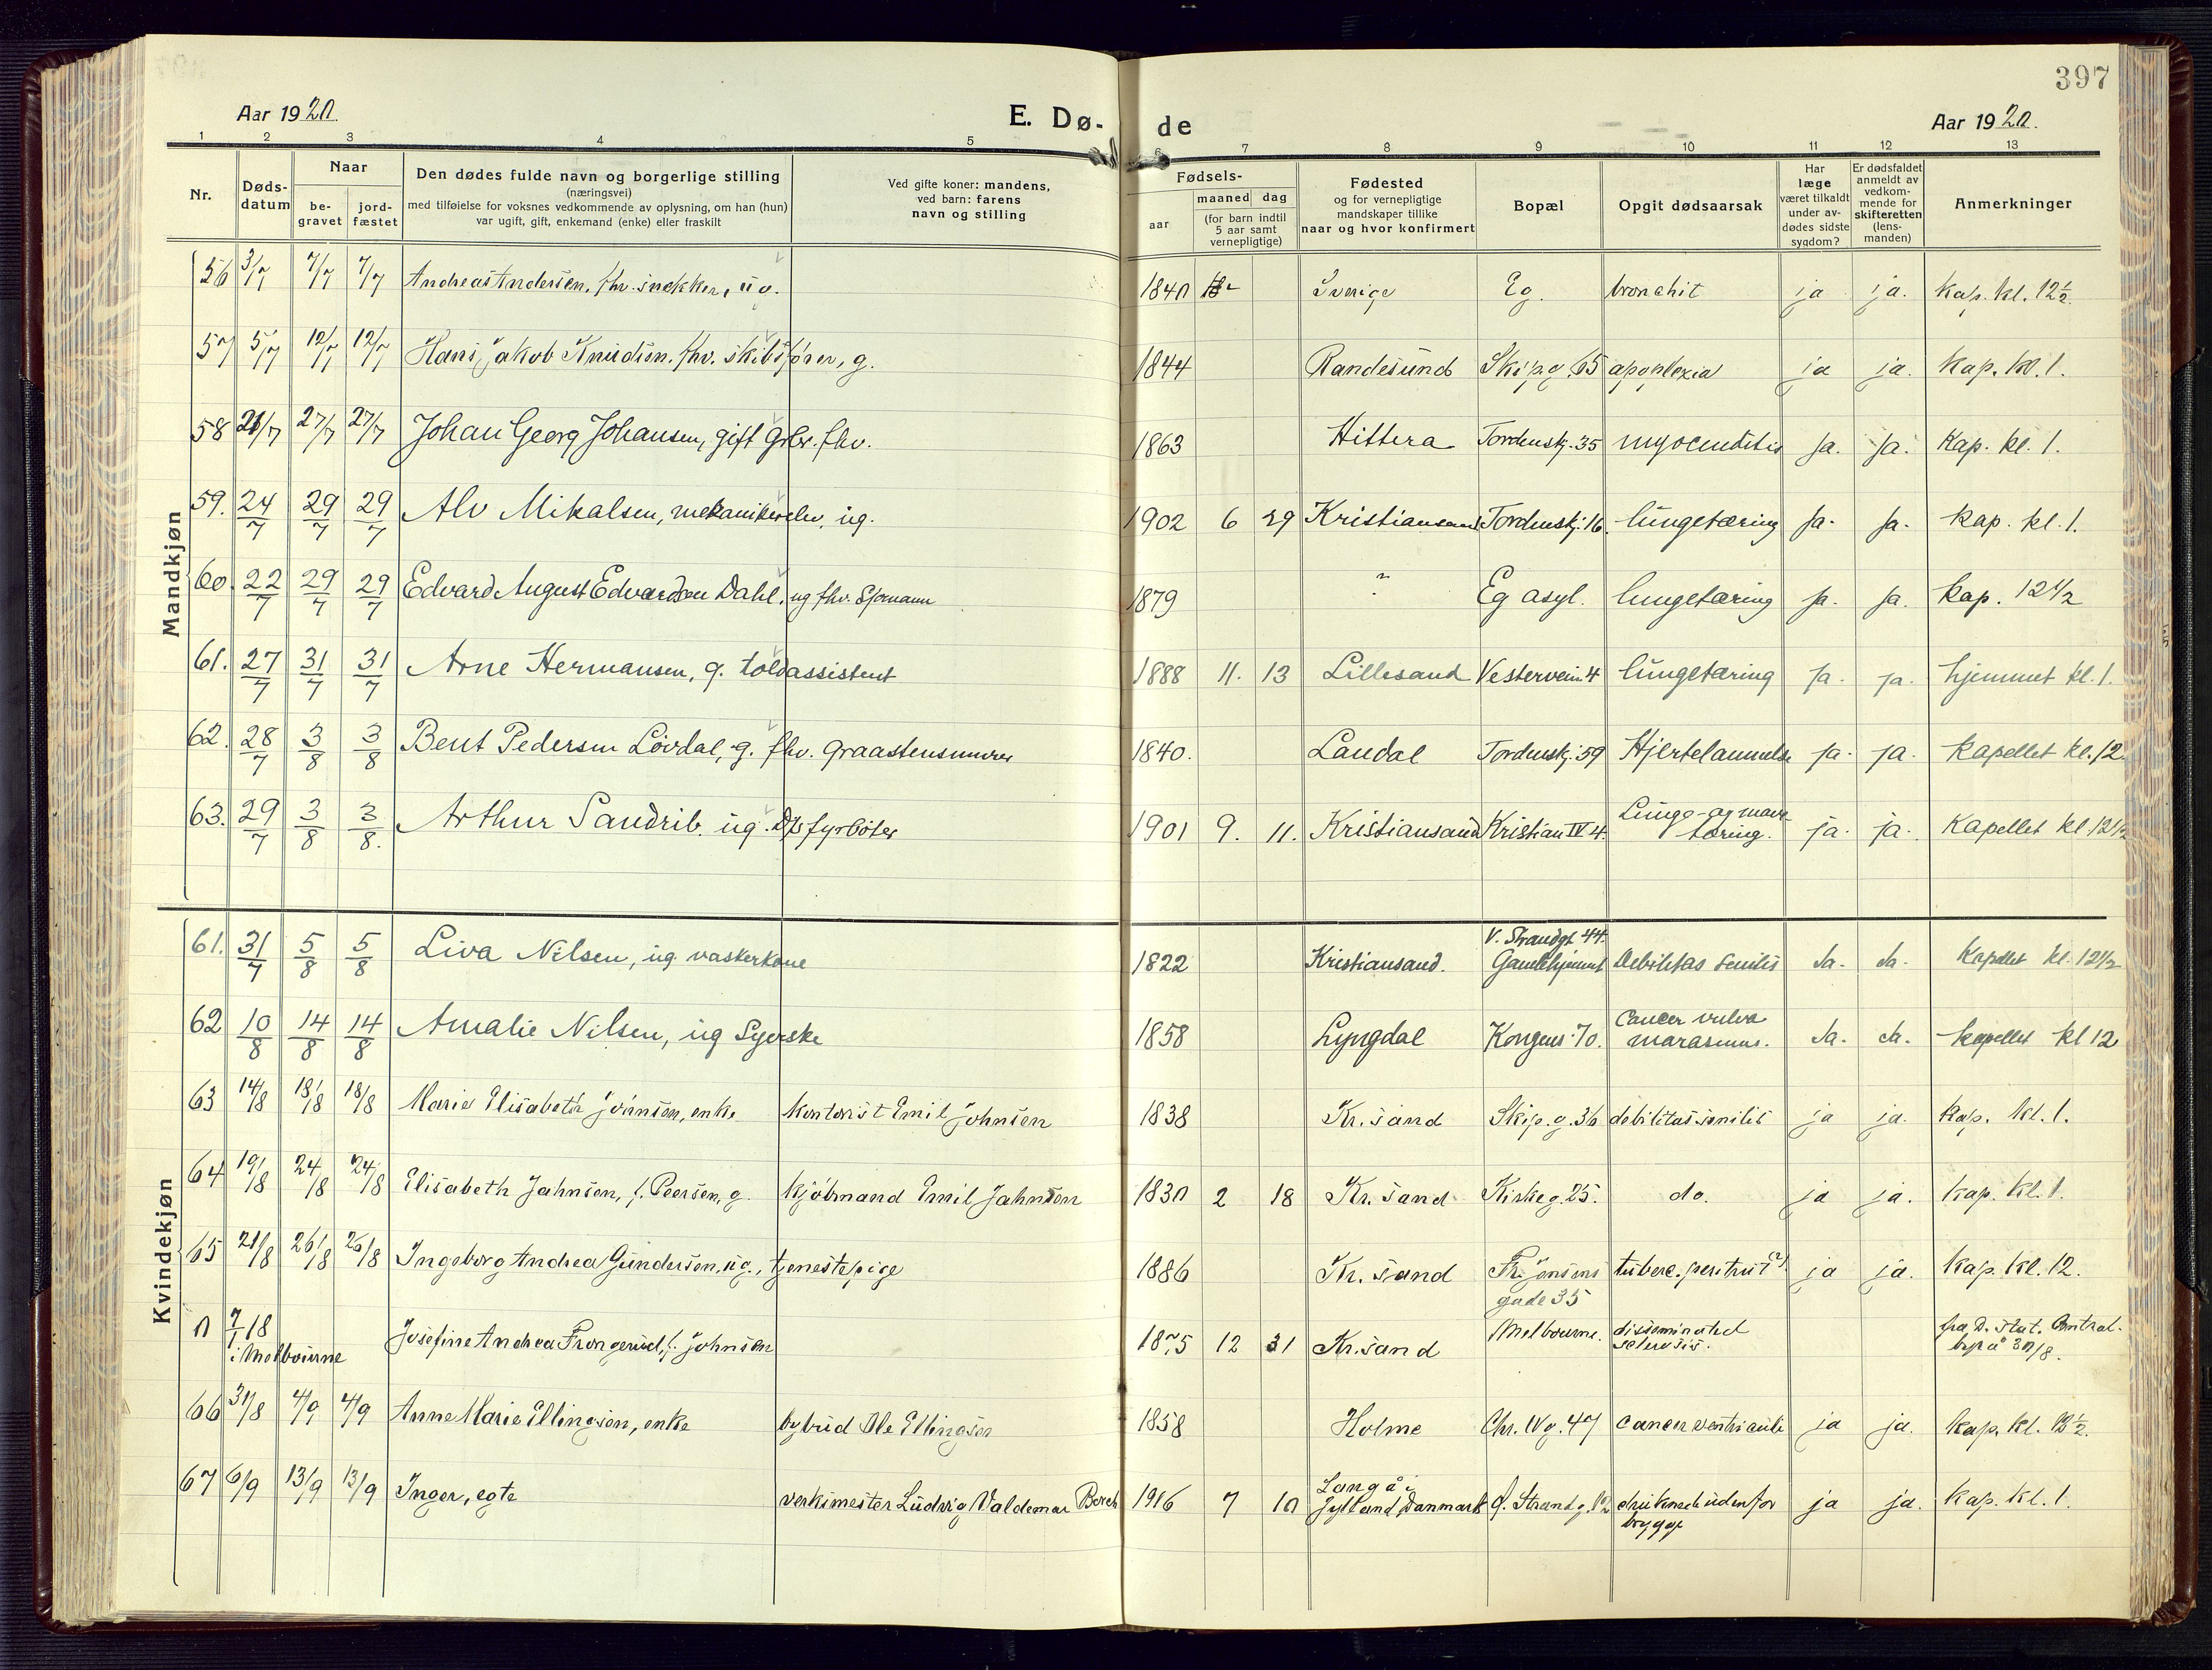 397
Aar 1920.
E. Dø- de
Aar 1920.
1 2 3 4 5 6 7 8 9 10 11 12 13
Nr.
Døds-
datum
Naar
be-
gravet
jord-
fæstet
Den dødes fulde navn og borgerlige stilling
(næringsvei)
med tilføielse for voksnes vedkommende av oplysning, om han (hun)
var ugift, gift, enkemand (enke) eller fraskilt
Ved gifte koner: mandens,
ved barn: farens
navn og stilling
Fødsels-
aar
maaned dag
(for barn indtil
5 aar samt
vernepligtige)
Fødested
og for vernepligtige
mandskaper tillike
naar og hvor konfirmert
Bopæl
Opgit dødsaarsak
Har
læge
været tilkaldt
under av-
dødes sidste
sygdom?
Er dødsfaldet
anmeldt av
vedkom-
mende for
skifteretten
(lens-
manden)
Anmerkninger
Mandkjøn
56 3/7 7/7 7/7 Andreas Andersen, fhv. snekker, ug. 1840 Sverige Eg. bronchit ja ja. kap. kl. 12½
57 5/7 12/7 12/7 Hans Jakob Knudsen, fhv. skibsfører, g. 1844 Randesund Skipg. 65 apoplexia ja ja. kap. kl. 1.
58 21/7 27/7 27/7 Johan Georg Johansen, gift grbr. fhv. 1863 Hittera Tordenskj. 35 myocenditis Ja. Ja. Kap. kl. 1.
59. 24/7 29/7 29/7 Alv Mikalsen, mekanikerelev, ug. 1902 6 29 Kristiansand Tordenskj. 16. lungetæring Ja. Ja. kap. kl. 1.
60. 22/7 29/7 29/7 Edvard August Edvardsen Dahl, ug fhv. Sjømann 1879 " Eg asyl. lungetæring Ja. Ja. kap. 12½
61. 27/7 31/7 31/7 Arne Hermansen, g. toldassistent 1888 11. 13 Lillesand Vesterveien 4 lungetæring Ja. ja. hjemmet kl. 1.
62. 28/7 3/8 3/8 Bent Pedersen Løvdal, g. fhv. graastensmurer 1840. Laudal Tordenskj. 59 Hjertelammelse ja. ja. kapellet kl. 12
63. 29/7 3/8 3/8. Arthur Sandrib. ug. D/s fyrbøter 1901 9. 11. Kristiansand Kristian IV 4. Lunge- og mave-
tæring. ja. ja. Kapellet kl 12½
Kvindekjøn
61. 31/7 5/8 5/8 Liva Nilsen, ug vaskerkone 1822 Kristiansand. V. Strandgt. 44.
Gamlehjemmet Debilitas senilis Ja. Ja. Kapellet kl. 12½
62 10/8 14/8 14/8 Amalie Nilsen, ug Syerske 1858 Lyngdal Kongens 70. Cancer vulva
marasmus. Ja. Ja. kapellet kl 12
63 14/8 18/8 18/8 Marie Elisabeth Johnsen, enke kontorist Emil Johnsen 1838 Kr.sand Skip.g. 36 debilitas senilis ja ja. kap. kl. 1.
64 19/8 24/8 24/8 Elisabeth Jahnsen, f. Peersen, g. kjøbmand Emil Jahnsen 1830 2 18 Kr.sand Kirkeg. 25. do. ja ja. kap. kl. 1.
65 21/8 26/8 26/8 Ingeborg Andrea Gundersen, ug., tjenestepige 1886 Kr.sand Fr. Jensens
gade 35 tuberc. ja ja. kap. kl. 12.
0 7/1 18
i Melbourne Josefine Andrea Frongerud, f. Johnsen 1875 12 31 Kr.sand Melbourne. disseminated
sclerosis. fra D. stat. Central-
byrå 30/8.
66 31/8 4/9 4/9 Anne Marie Ellingsen, enke bybud Ole Ellingsen 1858 Holme Chr. IV g. 47 cancer ventriculi ja ja. kap. kl. 12½.
67 6/9 13/9 13/9 Inger, egte verksmester Ludvig Valdemar Borch 1916 7 10 Langå i
Jylland, Danmark Ø. Strandg. 12 druknede udenfor
brygge ja ja. kap. kl. 1.